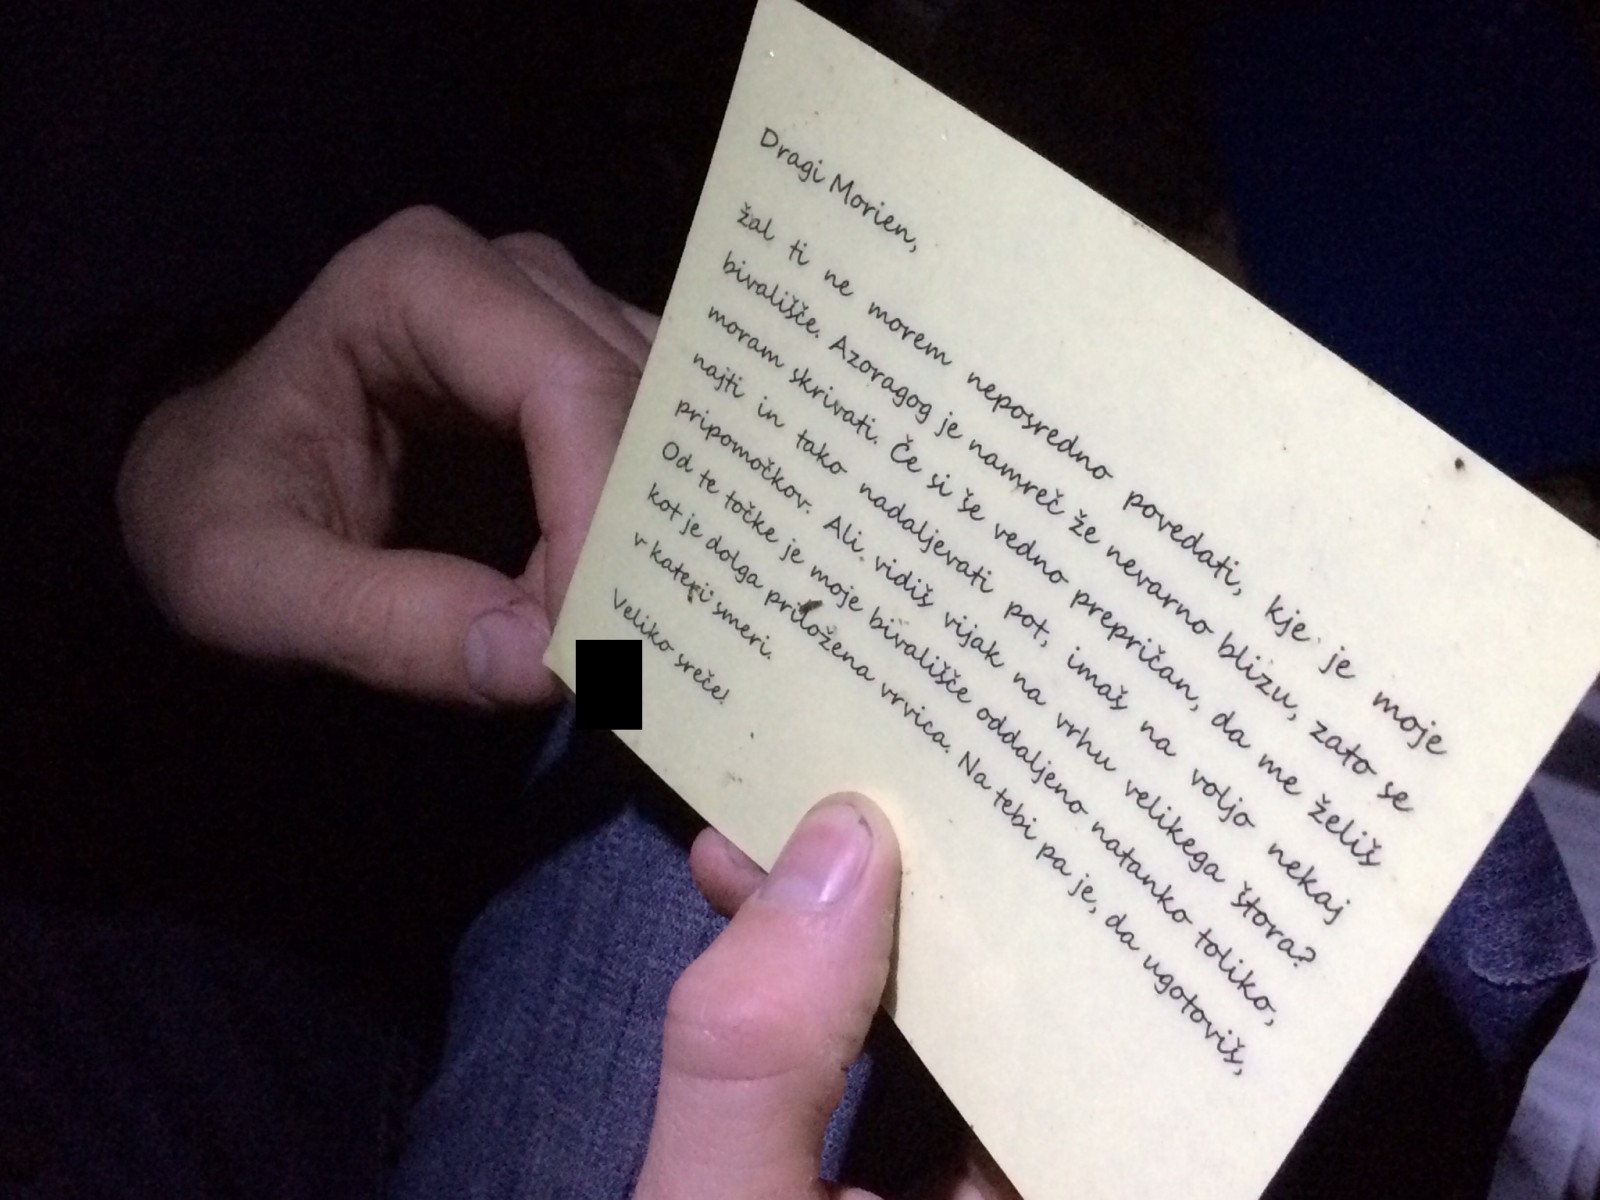 Dragi Morien,
žal ti ne morem neposredno povedati, kje je moje
bivališče. Azoragog je namreč že nevarno blizu, zato se
moram skrivati. Če si še vedno prepričan, da me želiš
najti in tako nadaljevati pot, imaš na voljo nekaj
pripomočkov. Ali vidiš vijak na vrhu velikega štora?
Od te točke je moje bivališče oddaljeno natanko toliko,
kot je dolga priložena vrvica. Na tebi pa je, da ugotoviš,
v kateri smeri.
Veliko sreče!